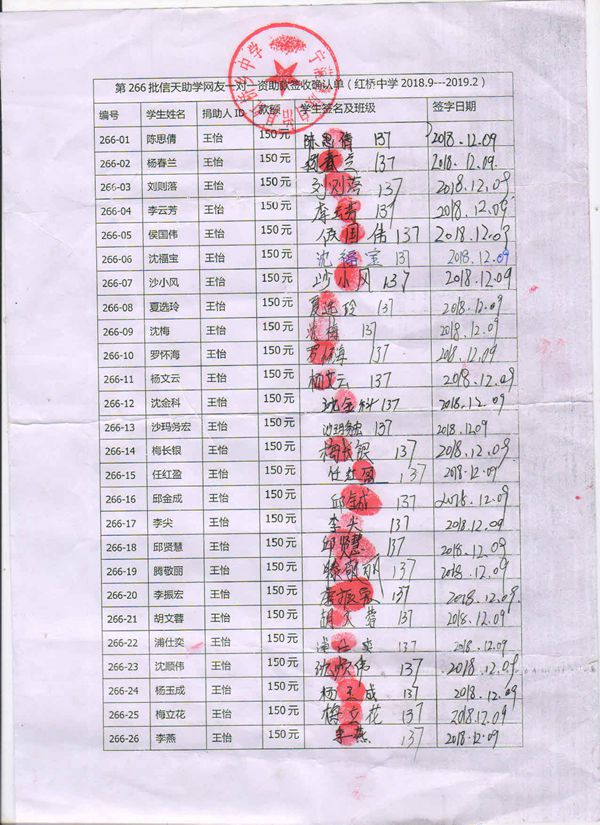 第266批信天助学网友一对一资助款签收确认单(红桥中学2018.9---2019.2)
编号 学生姓名 捐助人ID 款额 学生签名及班级 签字日期
266-01 陈思倩 王怡 150元 陈思倩 137 2018.12.09
266-02 杨春兰 王怡 150元 杨春兰 137 2018.12.09
266-03 刘则落 王怡 150元 刘则落 137 2018.12.09
266-04 李云芳 王怡 150元 李云芳 137 2018.12.09
266-05 侯国伟 王怡 150元 侯国伟 137 2018.12.09
266-06 沈福宝 王怡 150元 沈福宝 137 2018.12.09
266-07 沙小风 王怡 150元 沙小风 137 2018.12.09
266-08 夏选玲 王怡 150元 夏选玲 137 2018.12.09
266-09 沈梅 王怡 150元 沈梅 137 2018.12.09
266-10 罗怀海 王怡 150元 罗怀海 137 2018.12.09
266-11 杨文云 王怡 150元 杨文云 137 2018.12.09
266-12 沈金科 王怡 150元 沈金科 137 2018.12.09
266-13 沙玛务宏 王怡 150元 沙玛务宏 137 2018.12.09
266-14 梅长银 王怡 150元 梅长银 137 2018.12.09
266-15 任红盈 王怡 150元 任红盈 137 2018.12.09
266-16 邱金成 王怡 150元 邱金成 137 2018.12.09
266-17 李尖 王怡 150元 李尖 137 2018.12.09
266-18 邱贤慧 王怡 150元 邱贤慧 137 2018.12.09
266-19 腾敬丽 王怡 150元 腾敬丽 137 2018.12.09
266-20 李振宏 王怡 150元 李振宏 137 2018.12.09
266-21 胡文蓉 王怡 150元 胡文蓉 137 2018.12.09
266-22 浦仕奕 王怡 150元 浦仕奕 137 2018.12.09
266-23 沈顺伟 王怡 150元 沈顺伟 137 2018.12.09
266-24 杨玉成 王怡 150元 杨玉成 137 2018.12.09
266-25 梅立花 王怡 150元 梅立花 137 2018.12.09
266-26 李燕 王怡 150元 李燕 137 2018.12.09